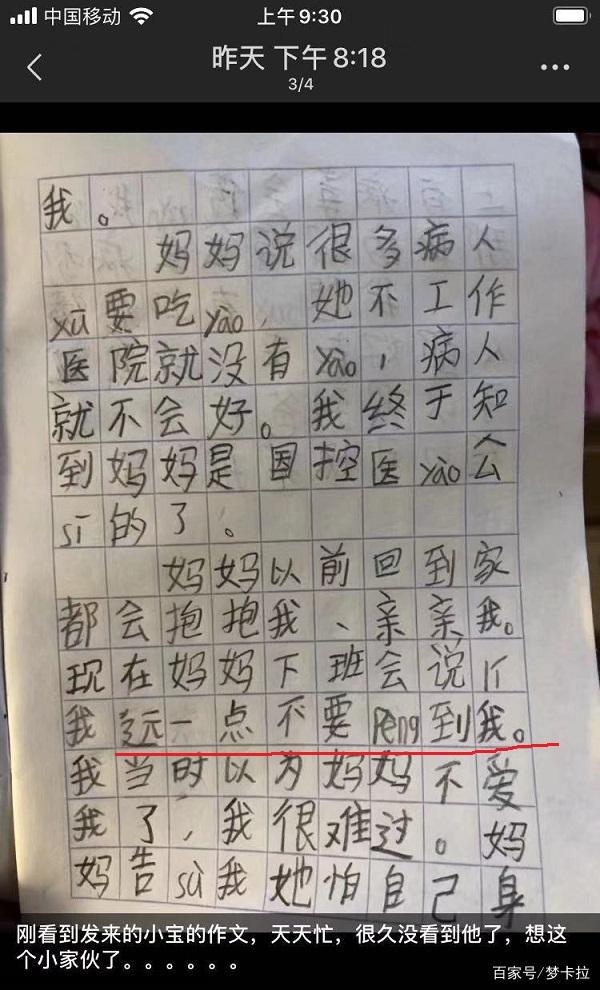 中国移动
上午9:30
昨天 下午8:18
3/4
我。
妈妈说很多病人
xū要吃yào,她不工作
医院就没有yào,病人
就不会好。我终于知
到妈妈是国控医yào公
sī的了。
妈妈以前回到家
都会抱抱我、亲亲我。
现在妈妈下班会说
我远一点不要Peng到我。
我当时以为妈妈不爱
我了,我很难过。妈
妈告sù我她怕自己身
刚看到发来的小宝的作文，天天忙，很久没看到他了，想这
个小家伙了。。。。。。
百家号/梦卡拉